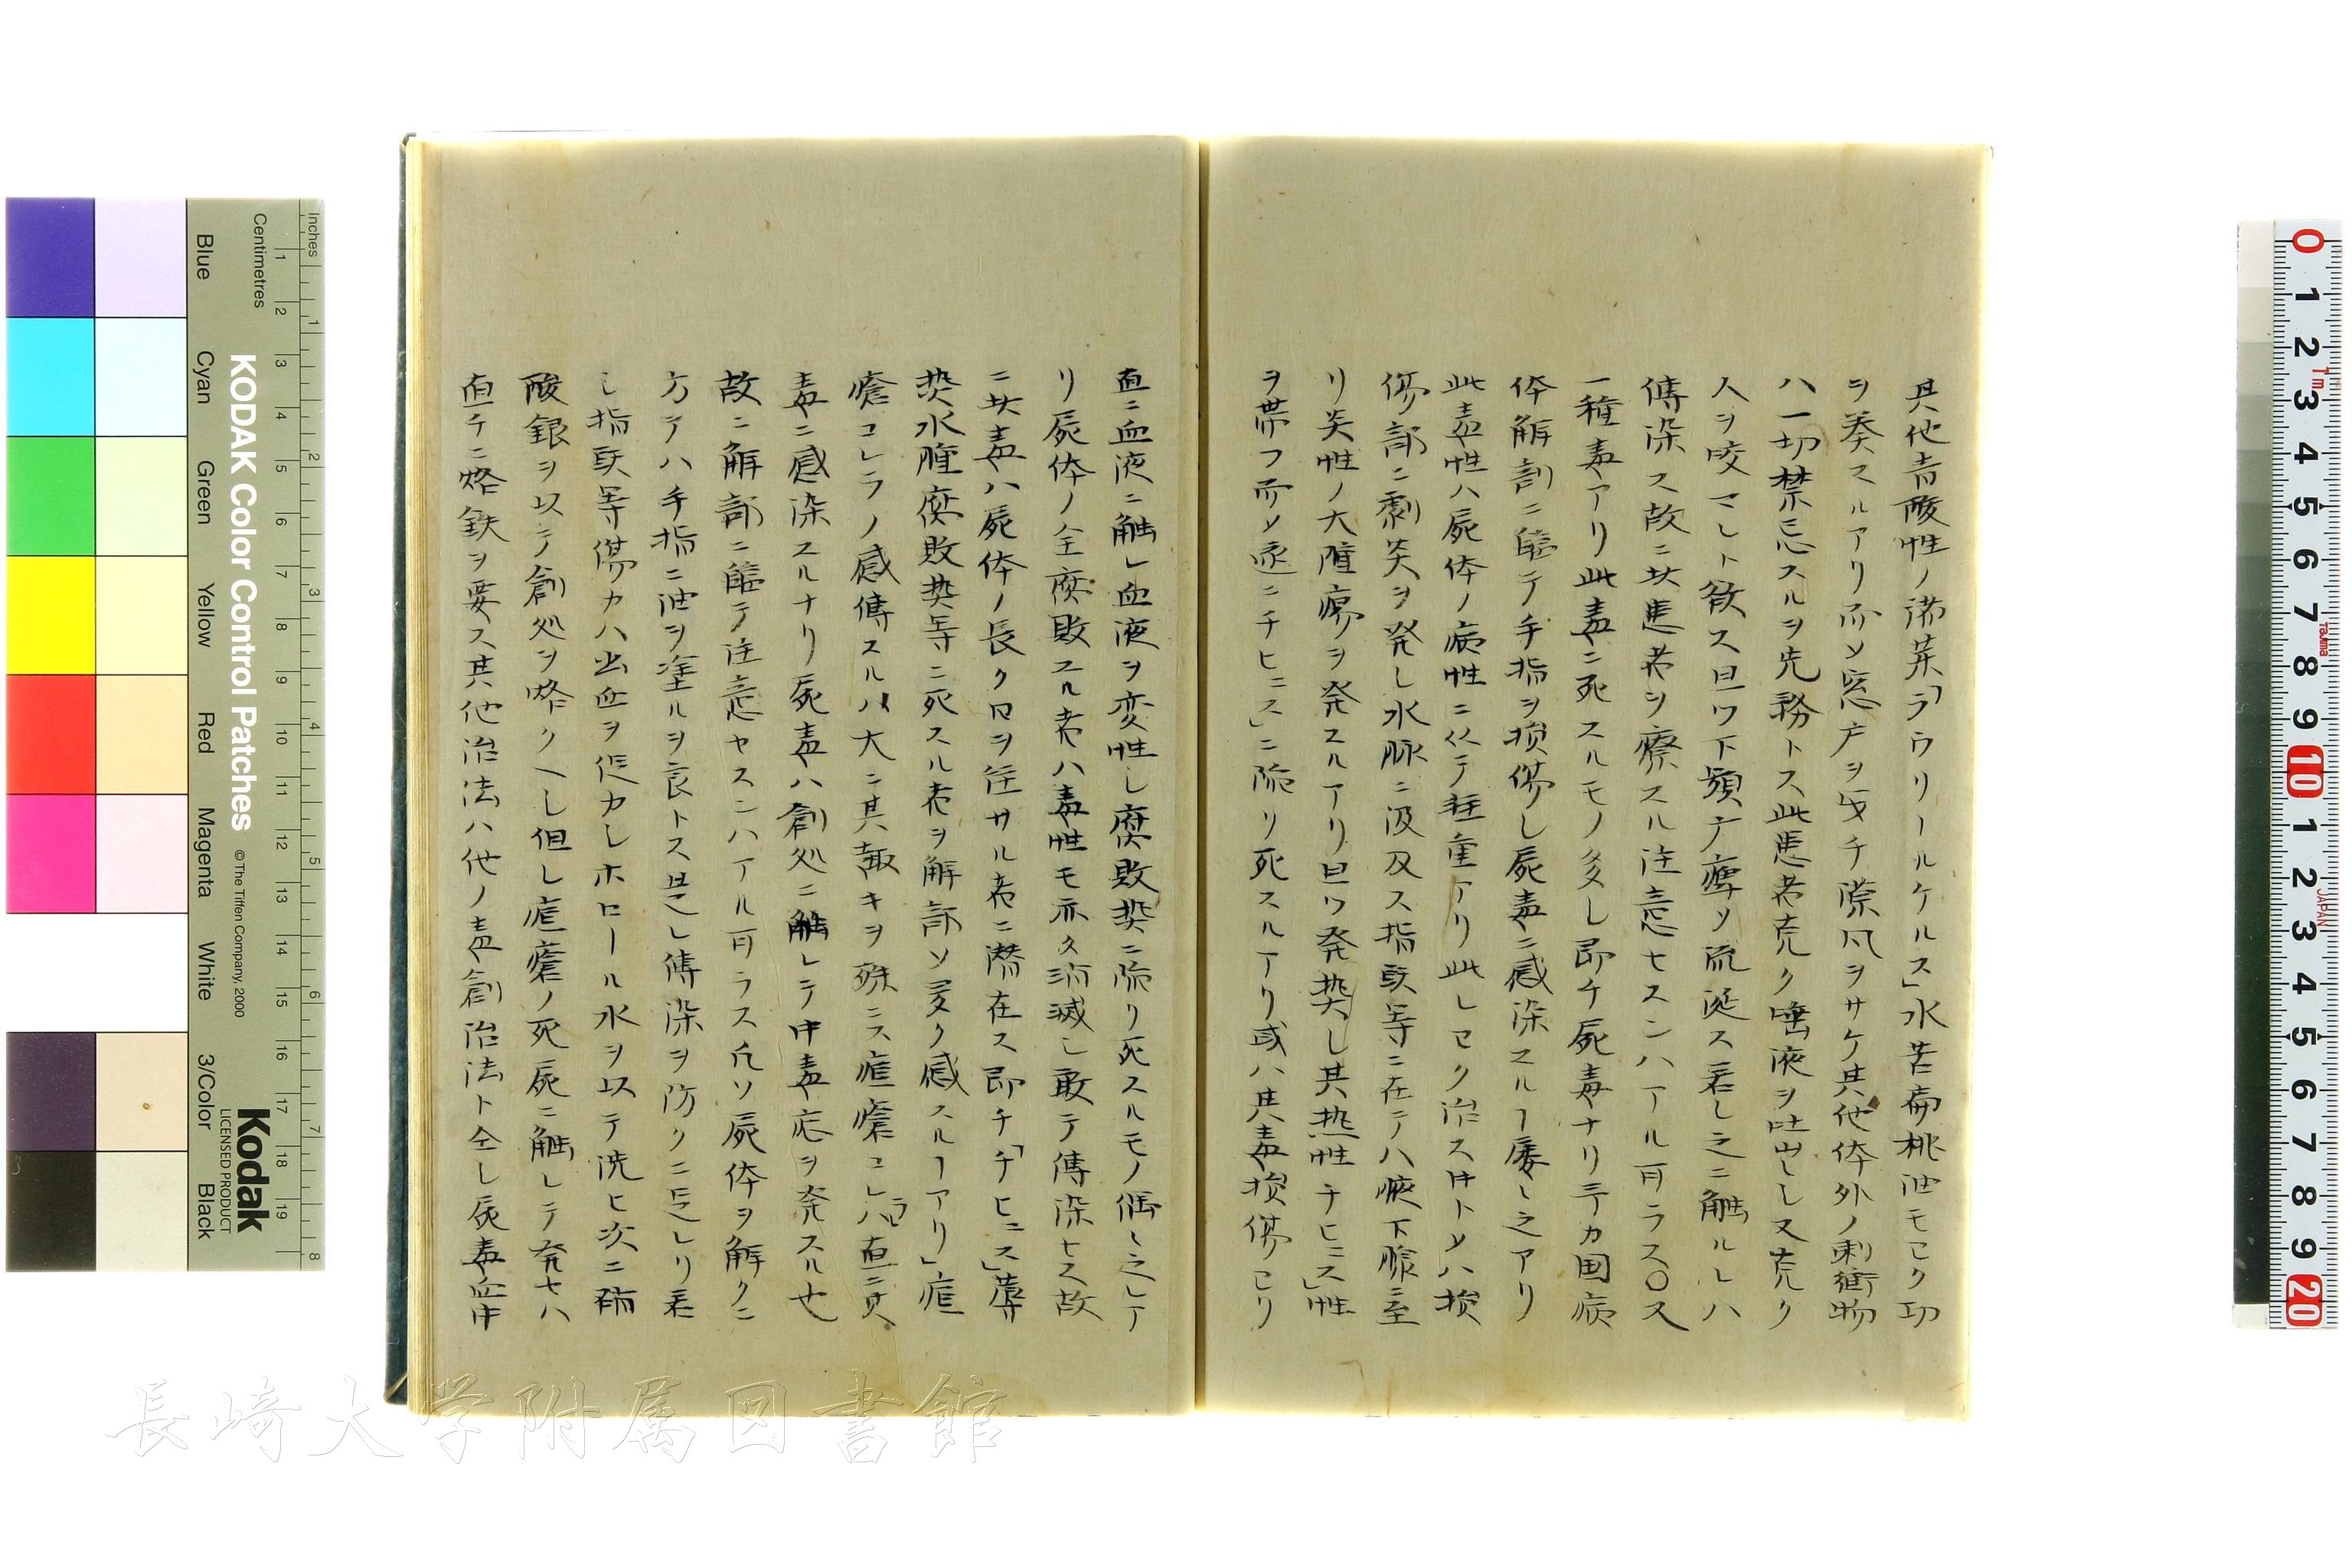 其他青酸性ノ諸薬「ラウリールケルス」水苦扁桃油モヨク功
ヲ奏スルアリ而ソ窓戸ヲ閉チ際風ヲサケ其他体外ノ刺衝物
ハ一切禁忌スルヲ先務トス此患者克ク唾液ヲ吐出シ又克ク
人ヲ咬マシト欲ス且ツ下顎麻痺ソ流涎ス若シ之ニ触ルレハ
傳染ス故ニ其患者ヲ療スル注意セスンハアル可ラス〇又
一種毒アリ此毒ニ死スルモノ多シ即チ屍毒ナリ吾カ国病
体解剖ニ臨テ手指ヲ損傷シ屍毒ニ感染スルヿ屡〻之アリ
此毒性ハ屍体ノ病性ニ仍テ軽重アリ此レヨク治ス件トメハ損
傷部ニ劇炎ヲ発シ水脈ニ汲及ス指頭等ニ在テハ腋下腺ニ至
リ炎性ノ大腫瘍ヲ発スルアリ且ツ発熱シ其熱性チヒニス」性
ヲ帯フ而ソ遂ニチヒニス」ニ陥リ死スルアリ或ハ其毒損傷ヨリ
直ニ血液ニ触レ血液ヲ変性シ腐敗熱ニ陥リ死スルモノ偶〻之レア
リ屍体ノ全腐敗スル者ハ毒性モ亦タ消滅シ敢テ傳染セス故
ニ其毒ハ屍体ノ長ク日ヲ経サル者ニ潜在ス即チ「チヒニス」蓐
熱水腫腐敗熱等ニ死スル者ヲ解剖ソ多ク感スルヿアリ」痘
瘡コレラノ感傳スルハ大ニ其趣キヲ殊ニス痘瘡コレラハ直ニ其
毒ニ感染スルナリ死毒ハ創処ニ触レテ中毒応ヲ発スル也
故ニ解剖ニ臨テ注意セスンハアル可ラス凡ソ屍体ヲ解クニ
方テハ手指ニ油ヲ塗ルヲ良トス是レ傳染ヲ防クニ足レリ若
シ指頭等傷カハ出血ヲ促カシホロール水ヲ以テ洗ヒ次ニ硝
酸銀ヲ以テ創処ヲ烙クヘシ但シ痘瘡ノ死屍ニ触レテ発セハ
直チニ烙鉄ヲ要ス其他治法ハ他ノ毒創治法ト仝シ屍毒血中
KODAK Color Control Patches
© The Tiffen Company, 2000
Kodak
LICENSED PRODUCT
Inches
Centimetres
Blue
Cyan
Green
Yellow
Red
Magenta
White
3/Color
Black
長崎大学附属図書館